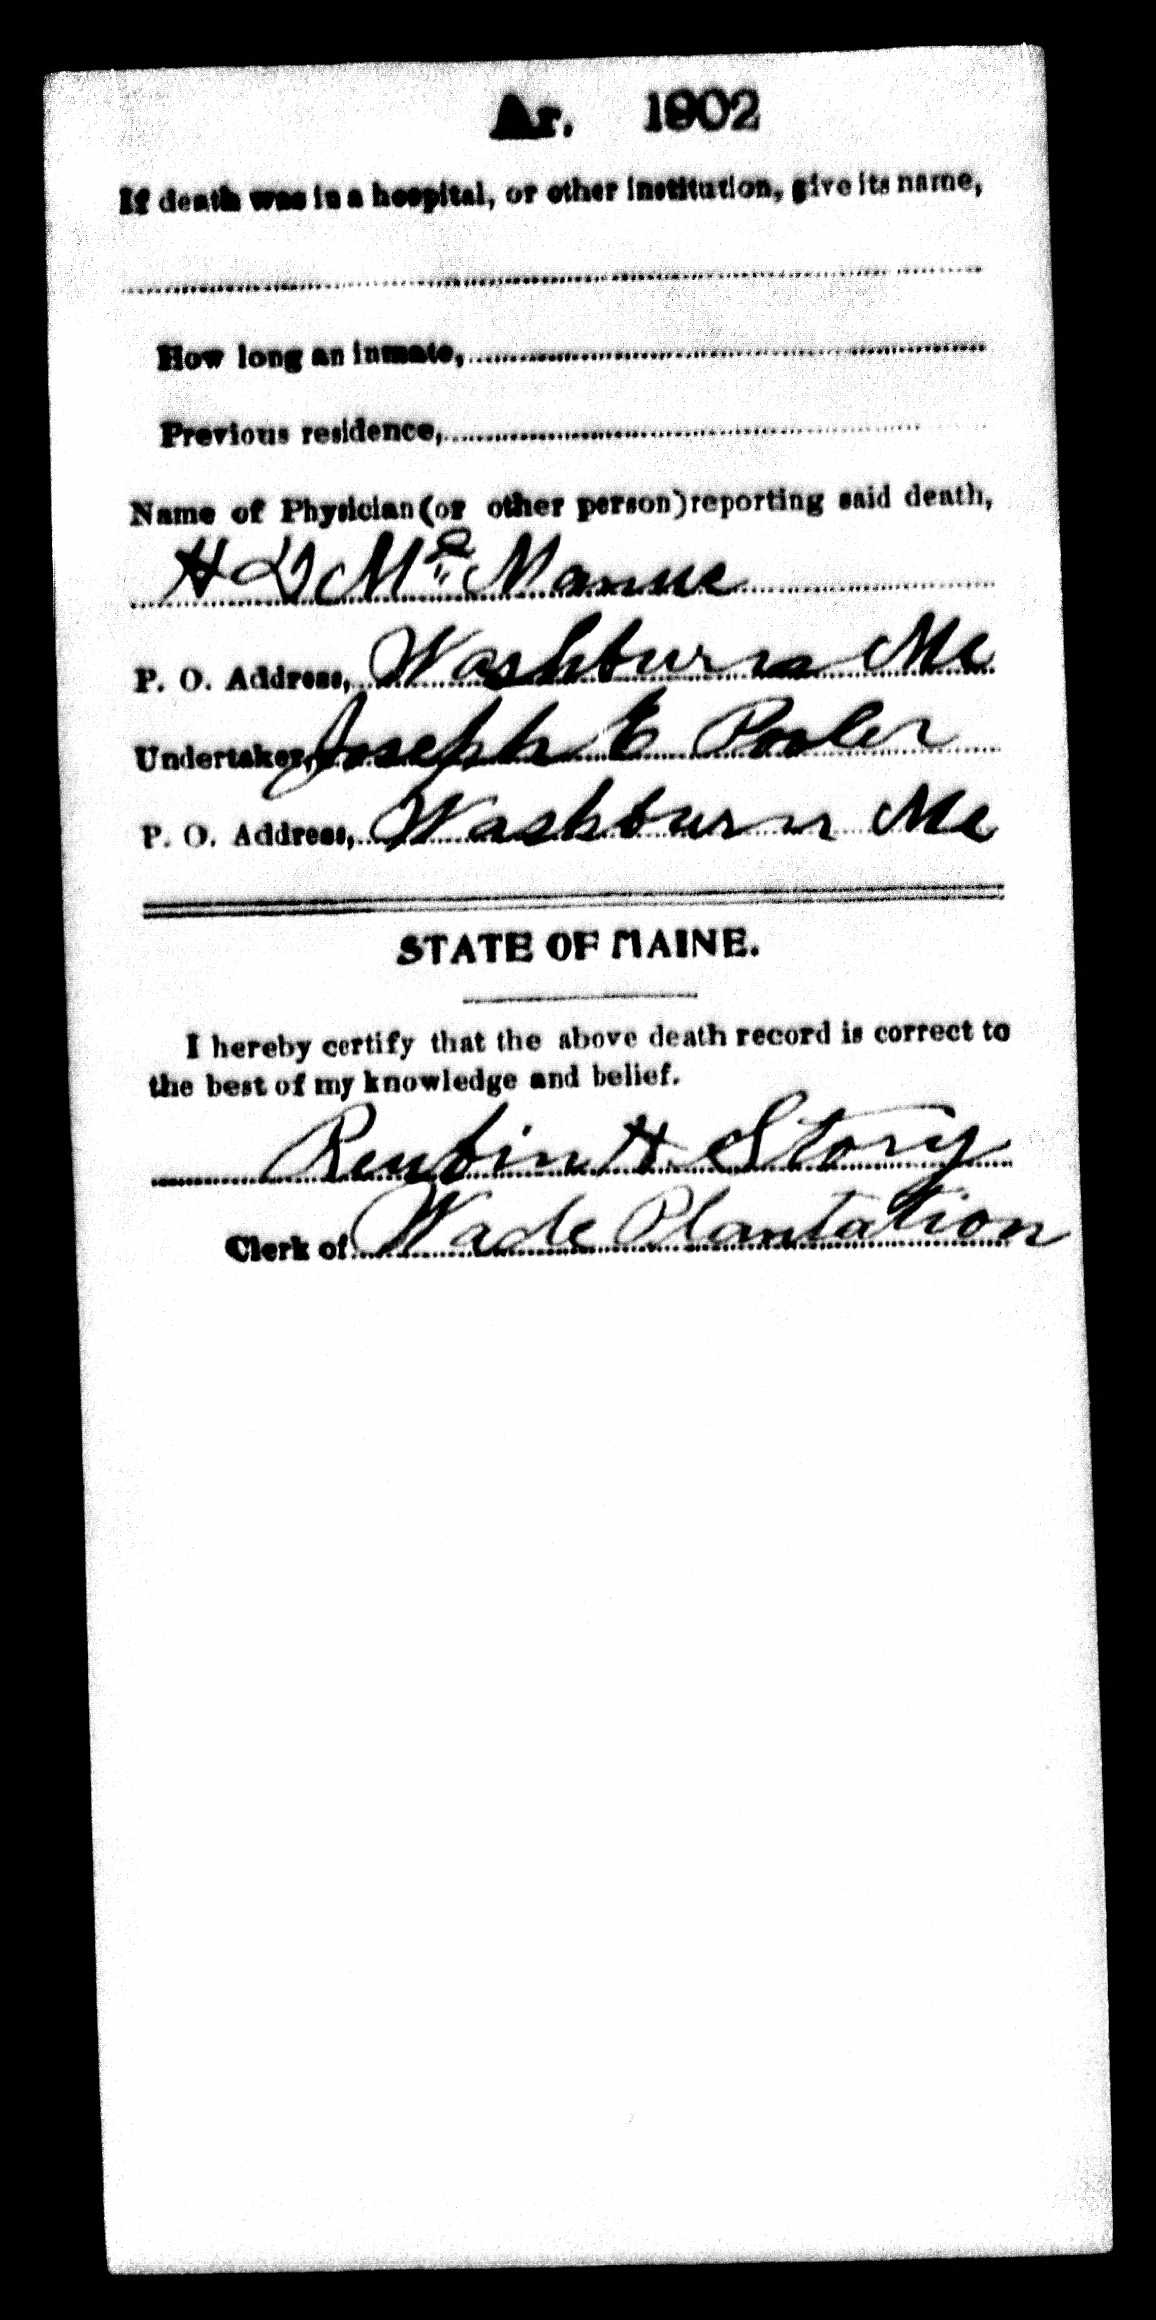 Ar. 1902
If death was in a hospital, or other institution, give its name,
How long an inmate,
Previous residence,
Name of Physician (or other person) reporting said death,
H D Mc Manus
P. O. Address, Washburn Me
Undertaker, Joseph E Pooler
P. O. Address, Washburn Me
STATE OF MAINE.
I hereby certify that the above death record is correct to
the best of my knowledge and belief.
Reubin H Story
Clerk of Wade Plantation